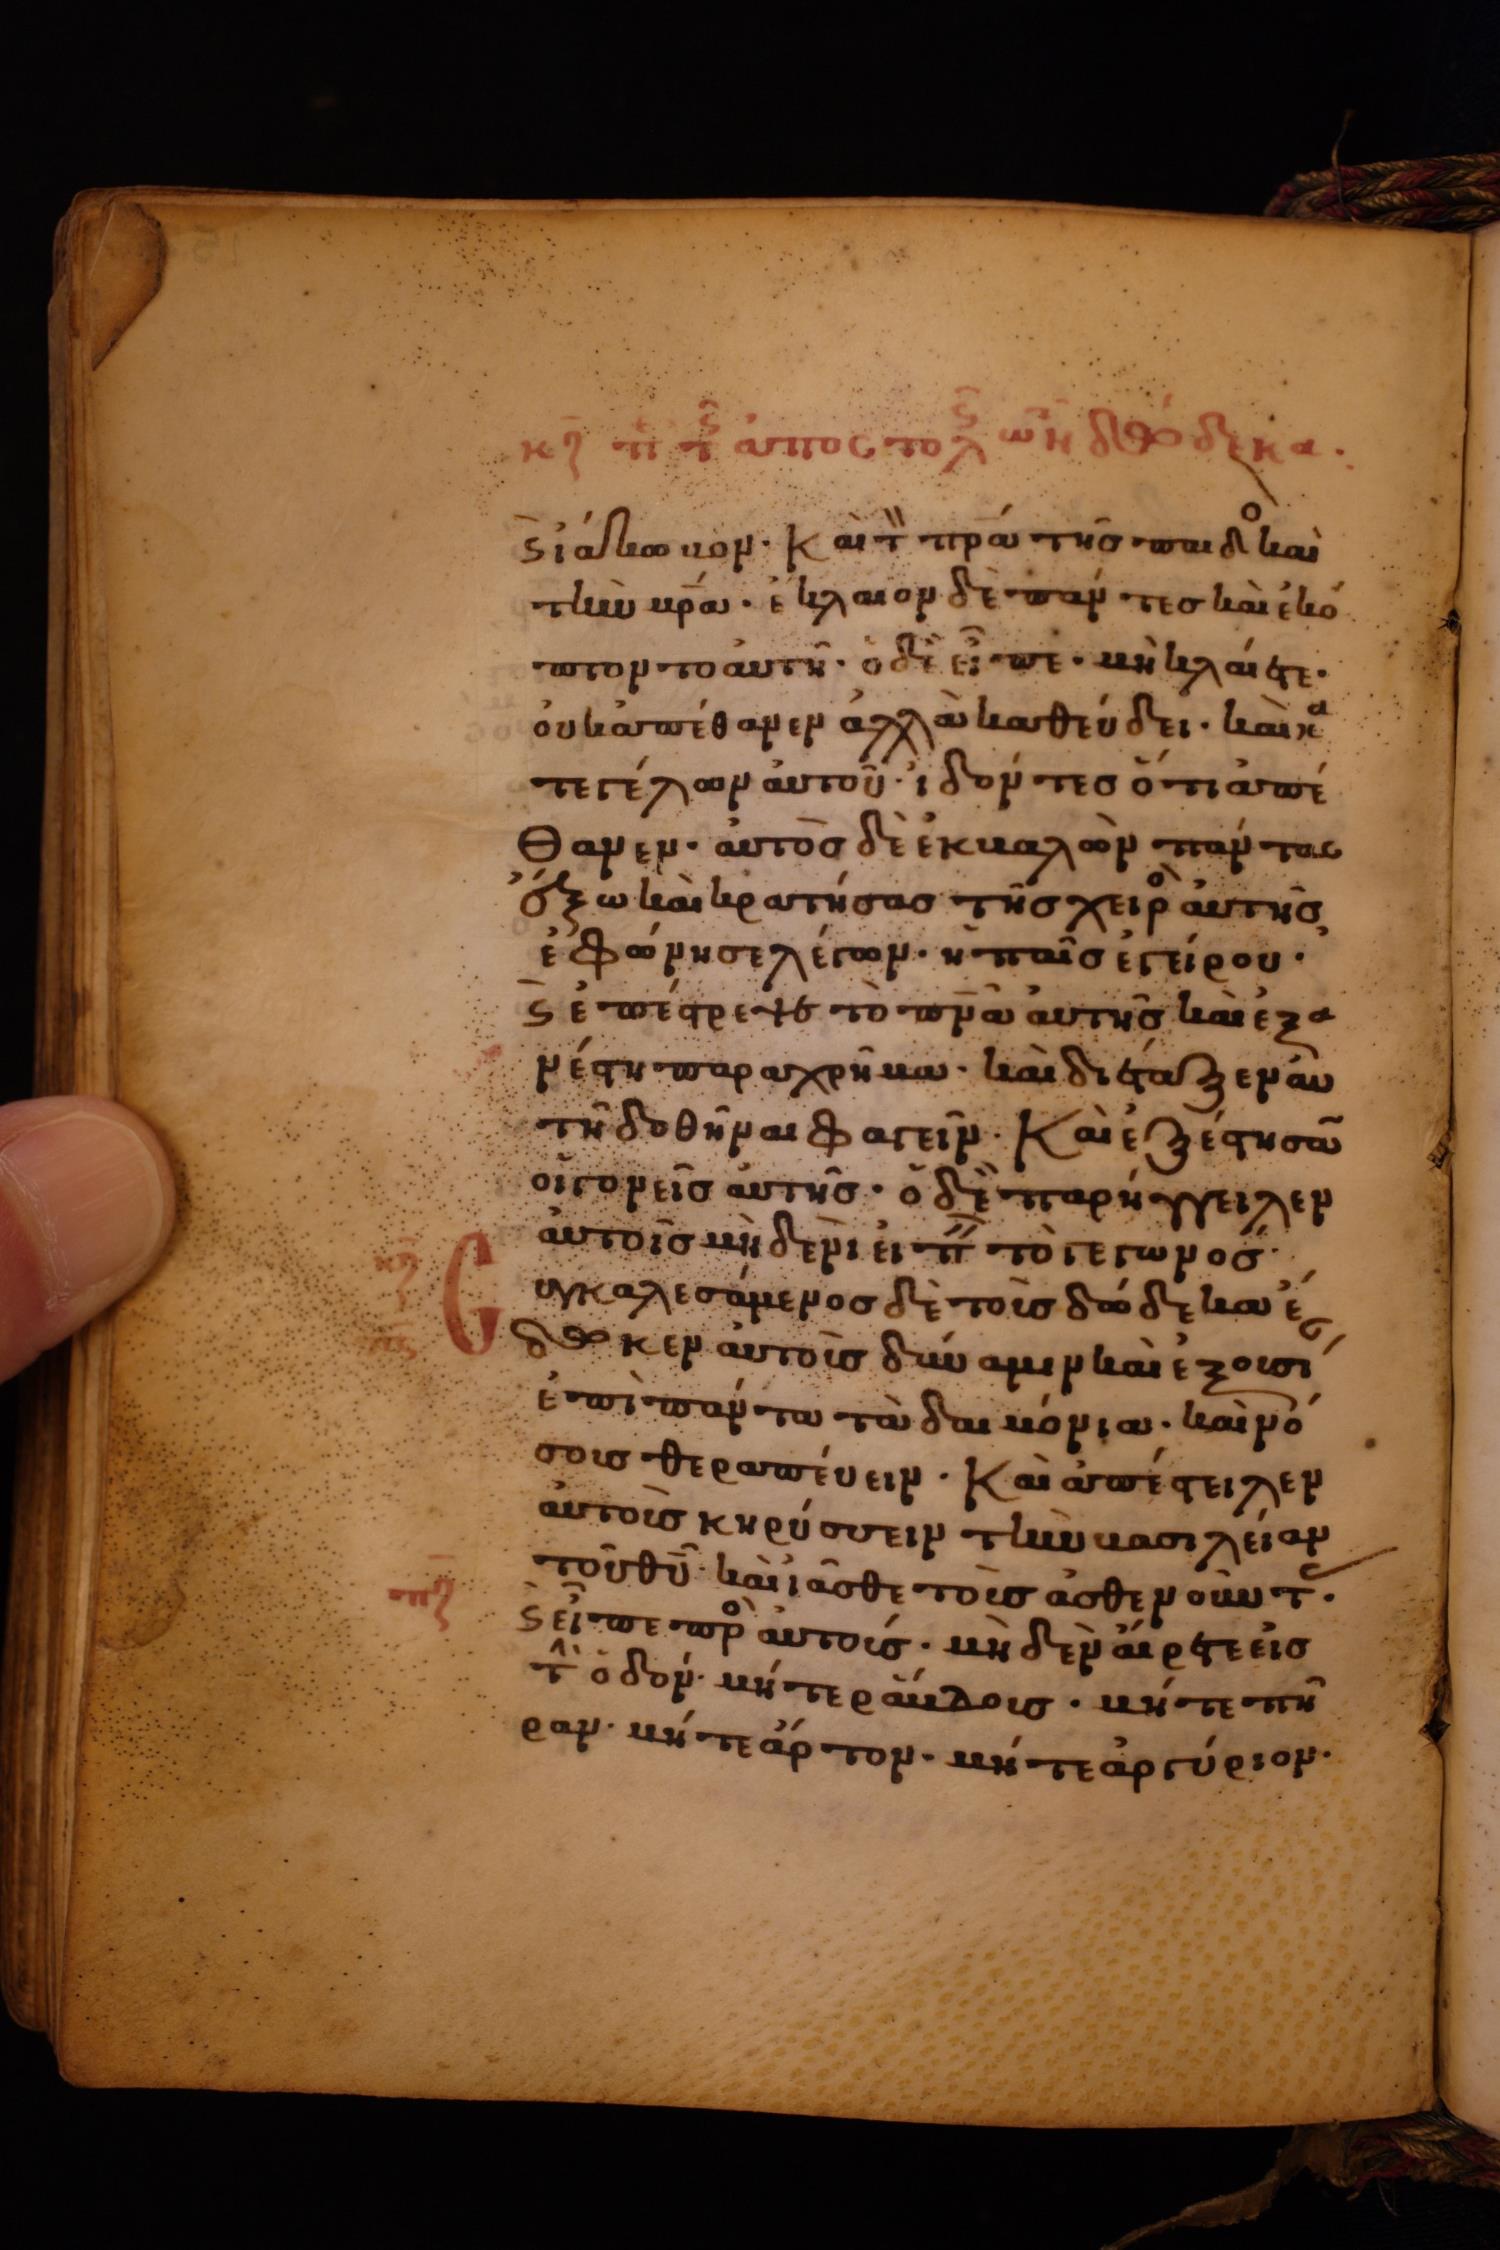 κη π τ ἀποστολ ων δώδεκα.
ϗ ἰάκωβον· Καὶ τ πρα τῆς παιδο καὶ
τὴν μρα· ἔκλαιον δὲ πάντες καὶ ἐκό
πτοντο αὐτὴν· ὁ δὲ εἶπε· μὴ κλαίετε·
οὐκ ἀπέθανεν ἀλλὰ καθεύδει· καὶ κα
τεγέλων αὐτοῦ· ἰδόντες ὅτι ἀπέ
θανεν· αὐτὸς δὲ ἐκβαλὼν πάντας
ἔξω καὶ κρατήσας τῆς χειρο αὐτῆς
ἐφώνησε λέγων· ἡ παῖς ἐγείρου·
ϗ ἐπέστρεψε τὸ πνα αὐτῆς καὶ ἀνα
νέστη παραχρῆμα· καὶ διέταξεν αὐ
τῇ δοθῆναι φαγεῖν· Καὶ ἐξέστησαν
οἱ γονεῖς αὐτῆς· ὁ δὲ παρήγγειλεν
αὐτοῖς μὴδενὶ εἰπ τὸ γεγωνός·
κη Συγκαλεσάμενος δὲ τοὺς δώδεκα ἔ
δωκεν αὐτοῖς δύναμιν καὶ ἐξουσί
ἐπὶ πάντα τὰ δαιμόνια· καὶ νό
σους θεραπεύειν· Καὶ ἀπέστειλεν
αὐτοὺς κηρύσσειν τὴν βασιλείαν
τοῦ θυ· καὶ ἰᾶσθε τοὺς ἀσθενοῦντ·
πζ ϗ εἶπε προ αὐτούς· μὴδὲν αἴρετε εἰς
τ ὁδόν· μήτε ῥάβδους· μήτε πή
ραν· μήτε ἄρτον· μήτε ἀργύριον·